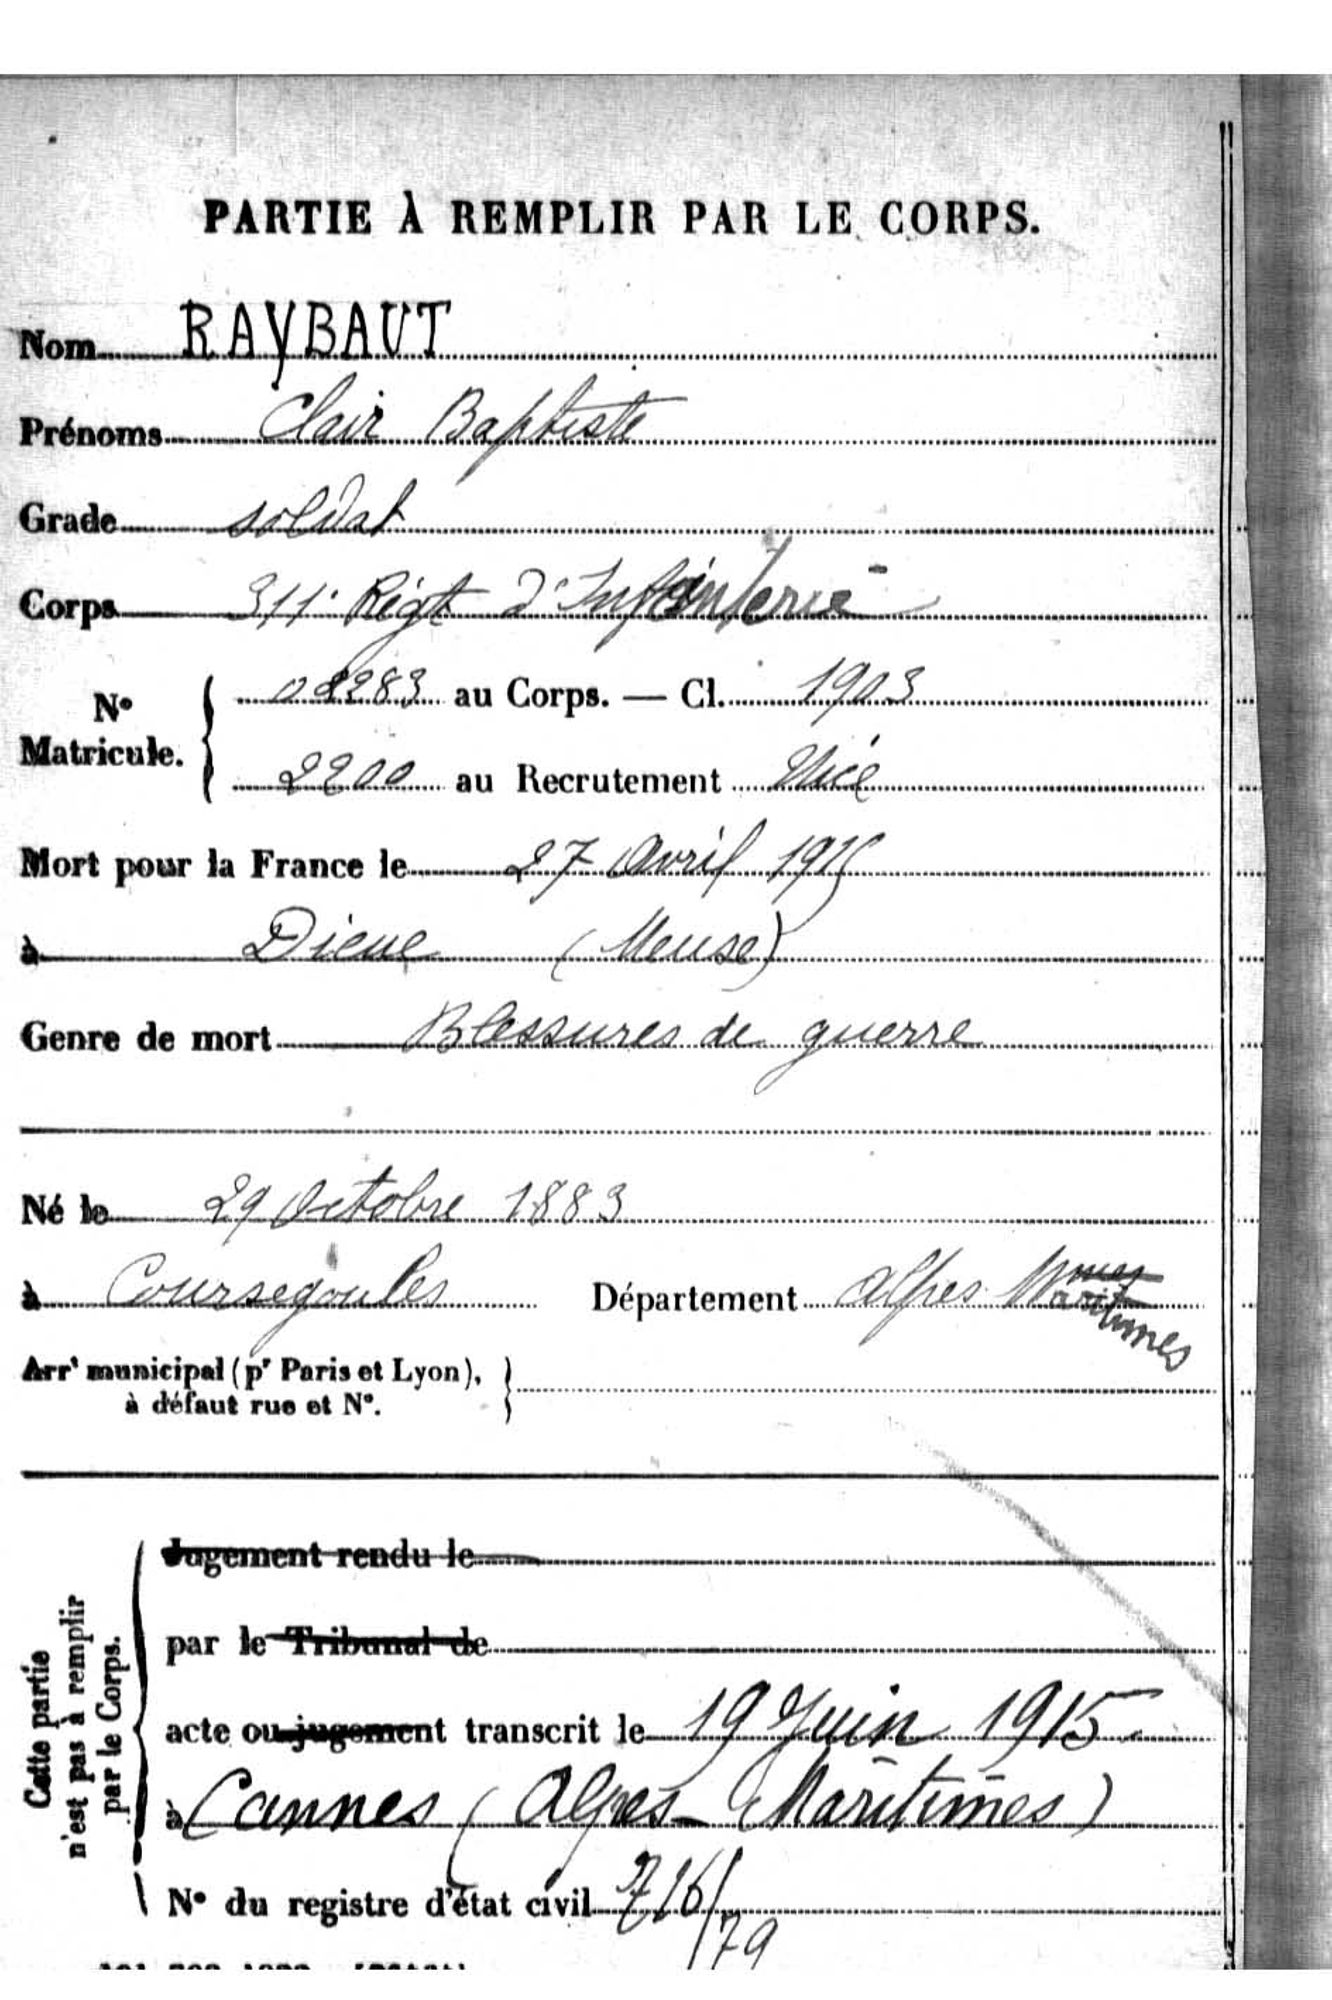 PARTIE À REMPLIR PAR LE CORPS.
Nom RAYBAUT
Prénoms Clair Baptiste
Grade soldat
Corps 311e Régt d'Infanterie
No Matricule. { 02283 au Corps. — Cl. 1903
2200 au Recrutement Nice
Mort pour la France le 27 Avril 1915
à Dieue (Meuse)
Genre de mort Blessures de guerre
Né le 29 Octobre 1883
à Coursegoules Département Alpes Maritimes
Arrt municipal (pr Paris et Lyon), }
à défaut rue et No.
Cette partie
n'est pas à remplir
par le Corps.
Jugement rendu le
par le Tribunal de
acte ou jugement transcrit le 19 Juin 1915
à Cannes (Alpes-Maritimes)
No du registre d'état civil 716/79